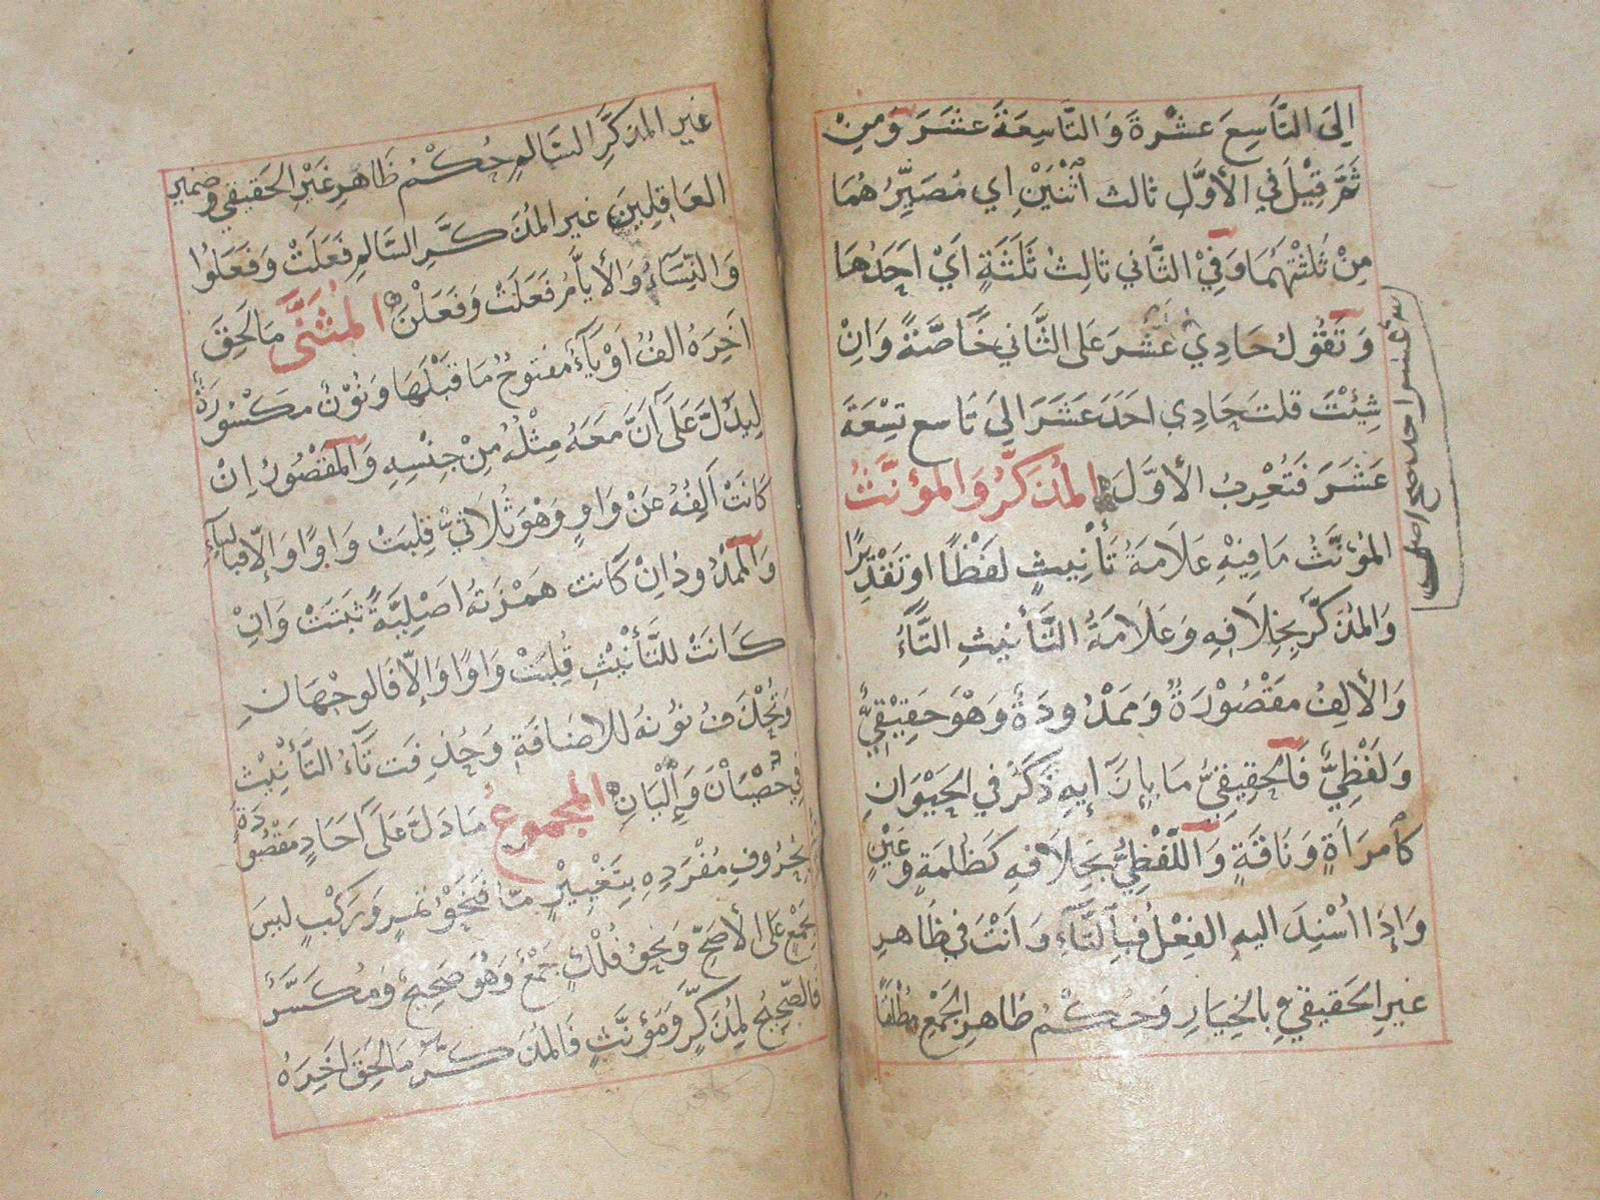 إلى التَّاسِعَ عَشْرَةَ وَالتَّاسِعَةَ عَشَرَ وَمِنْ
ثَمَّ قِيْلَ فِي الأَوَّلِ ثالث اثْنَيْنِ اي مُصَيِّرُهُمَا
مِنْ ثَلَثْتُهُمَا وَفِيْ الثَّانِي ثالِثُ ثَلَثَةٍ اَيْ اَحَدُهَا
وَتَقُولُ حَادِي عَشَرَ عَلَى الثَّانِي خَاصَّةً وَاِنْ
شِئْتَ قلتَ حَادِي احَدَ عَشَرَ اِلَى تَاسع تِسْعَةَ
عَشَرَ فَتُعْرِبُ الأَوَّلَ المُذَكَّرُ وَالمؤنَّثُ
المُؤَنَّثُ مَا فِيْهِ عَلَامَةُ تَأْنِيثٍ لَفْظًا او تَقْدِيْرًا
وَالمُذَكَّرُ بِخِلَافِهِ وَعَلَامَةُ التَّأْنِيثِ التَّاءُ
وَالأَلِفُ مَقْصُوْرَةً وَمَمْدُودَةً وَهْوَ حَقِيْقِيٌّ
وَلَفْظِيٌّ فَالحَقِيْقِيُّ مَا بِاِزَآئِهِ ذَكَرٌ فِي الحَيْوَانِ
كَامْرَأَةٍ وَنَاقَةٍ وَاللَّفْظِيُّ بِخِلَافِهِ كَظُلْمَةٍ وَعَيْنٍ
وَاِذَا اُسْنِدَ اليهِ الفِعْلُ فَبِالتَّآءِ وَاَنْتَ فِي ظَاهِرِ
غَيرِ الحَقيقيِّ بِالخِيَارِ وَحُكْمُ ظَاهِرِ الجَمْعِ مُطْلَقًا
غير المذكَّرِ السَّالمِ حُكْمُ ظَاهِرِ غَيْرِ الحَقِيقِي وضمير
العَاقِلِينَ غير المُذَكَّرِ السَّالِمِ فَعَلَتْ وَفَعَلُوْا
وَالنِّسَآءُ وَالأَيَّامُ فَعَلَتْ وَفَعَلْنَ المُثَنَّى مَا لَحِقَ
اٰخِرَهُ الِفٌ اَوْ يَآءٌ مَفتوحٌ مَا قَبْلَهَا وَنُوْنٌ مَكْسُورَةٌ
لِيَدُلَّ عَلَى اَنَّ مَعَهُ مِثْلُهُ مِنْ جِنْسِهِ وَالمَقْصُورُ اِنْ
كَانَتْ اَلِفُهُ عَنْ وَاوٍ وَهْوَ ثُلَاثِيٌّ قُلِبَتْ وَاوًا وَاِلَّا فَبِاليَآءِ
وَالمَمْدُودُ اِنْ كَانت هَمْزَتُهُ اصْلِيَّةً ثَبَتَتْ وَاِنْ
كَانَتْ لِلتَّأْنِيْثِ قُلِبَتْ وَاوًا وَاِلَّا فَالوَجْهَانِ
وَتُحْذَفُ نُوْنُهُ لِلاِضَافَةِ وَحُذِفَت تَآءُ التَّأْنِيْثِ
فِي خُصْيَانِ وَاِلْيَانِ المجموعُ مَا دَلَّ عَلَى اٰحَادٍ مَقْصُودَةٍ
بِحُرُوفِ مُفْرَدِهِ بِتَغْيِيْرٍ مَّا فَنَحْوُ تَمْرٍ وَرَكْبٍ ليسَ
بِجَمْعٍ عَلَى الأَصَحِّ وَنَحوُ فُلْكٍ جَمْعٌ وَهُوَ صَحِيحٌ وَمُكَسَّرٌ
فَالصَّحِيحُ لِمُذَكَّرٍ وَمُؤَنَّثٍ فَالمُذَكَّرُ مَا لَحِقَ اٰخِرَهُ